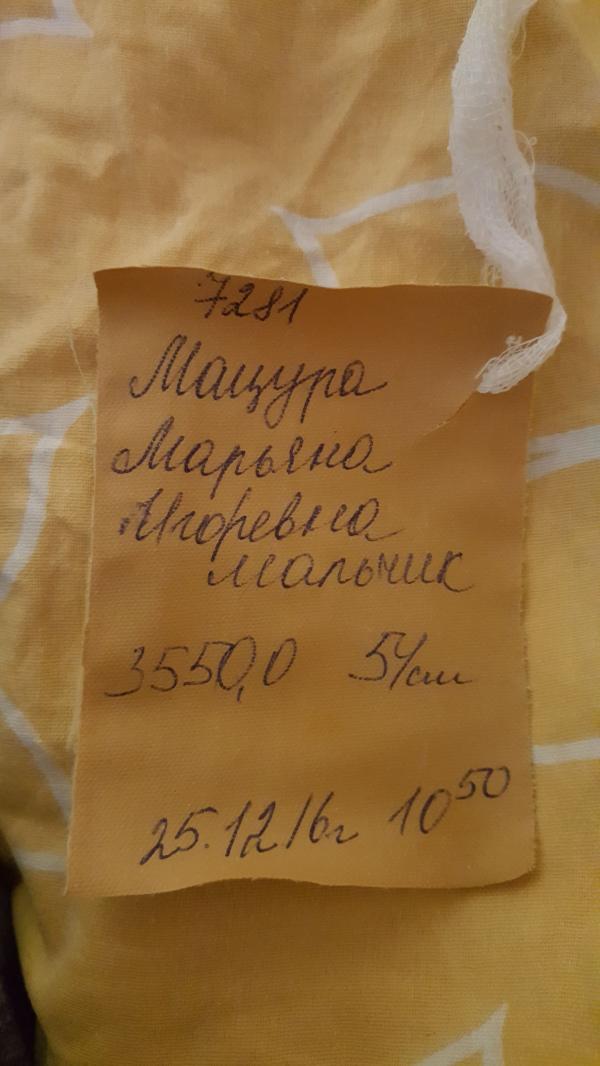 7281
Мацура
Марьяна
Игоревна
мальчик
3550,0 54см
25.12 16г 10 50